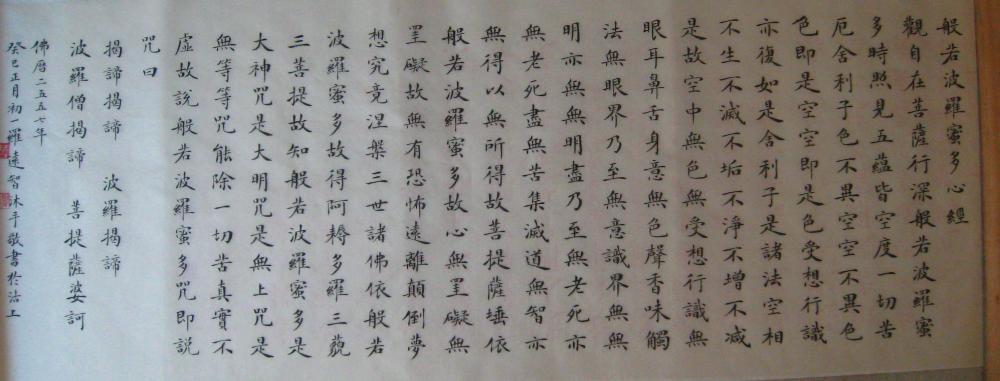 般若波羅蜜多心經
觀自在菩薩行深般若波羅蜜
多時照見五蘊皆空度一切苦
厄舍利子色不異空空不異色
色即是空空即是色受想行識
亦復如是舍利子是諸法空相
不生不滅不垢不淨不增不減
是故空中無色無受想行識無
眼耳鼻舌身意無色聲香味觸
法無眼界乃至無意識界無無
明亦無無明盡乃至無老死亦
無老死盡無苦集滅道無智亦
無得以無所得故菩提薩埵依
般若波羅蜜多故心無罣礙無
罣礙故無有恐怖遠離顛倒夢
想究竟涅槃三世諸佛依般若
波羅蜜多故得阿耨多羅三藐
三菩提故知般若波羅蜜多是
大神咒是大明咒是無上咒是
無等等咒能除一切苦真實不
虛故說般若波羅蜜多咒即說
咒曰
揭諦揭諦 波羅揭諦
波羅僧揭諦 菩提薩婆訶
佛曆二五五七年
癸巳正月初一羅遠智沐手敬書於沽上